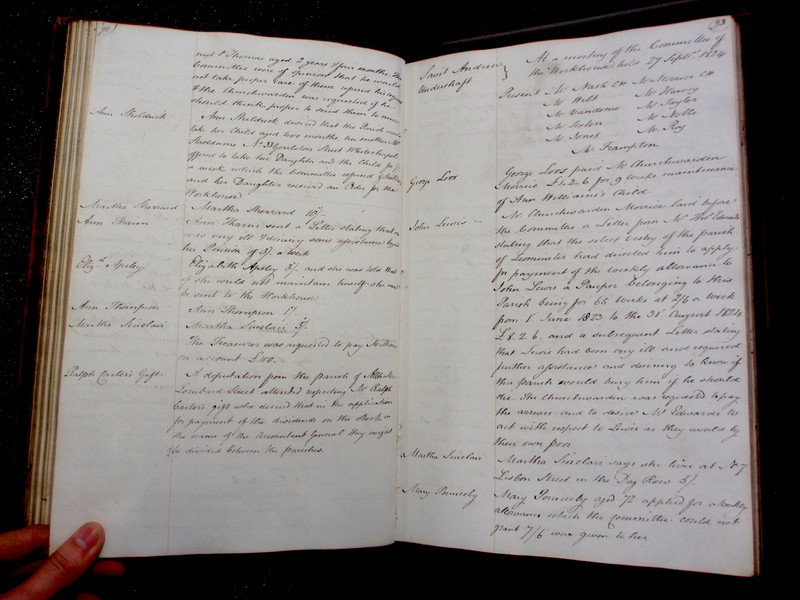 72
next & Thomas aged 2 years & five months. The
Committee were of opinion that he would
not take proper care of them refused his request
& the Churchwarden was requested if he
should think proper to send them to nurse
Ann Sheldrick
Ann Sheldrick desired that the Parish would
take her Child aged two months, her mother
No 33 Goulston Street Whitechapel
offered to take her Daughter and the Child for
a week which the Committee refused
and her Daughter received an Order for the
Workhouse
Martha Sherrard
Martha Sherrard 10/.
Ann Tharm
Ann Tharm sent a Letter stating that she
was very ill & desiring some assistance beyond
her Pension of 3/. a week
Elizth. Apsley
Elizabeth Apsley 3/. and she was told that
if she could not maintain herself she must
be sent to the Workhouse
Ann Thompson
Ann Thompson 1/.
Martha Sinclair
Martha Sinclair 5/.
The Treasurer was requested to pay
on account £100.
Ralph Carter's Gift
A deputation from the parish of Allhallows
Lombard Street attended respecting Mr Ralph
Carter's gift who desired that in the application
for payment of the dividends on the stock in
the name of the Accountant General they might
be divided between the parishes.
73
Saint Andrew
Undershaft
At a meeting of the Committee of
the Workhouse held 29 Septr. 1824
Present Mr Nash CW Mr Morrice CW
Mr Webb Mr Harvey
Mr Vandome Mr Taylor
Mr Sexton Mr Nobbs
Mr Jones Mr Roy
Mr Frampton
George Loos
George Loos paid Mr Churchwarden
Morrice £1.2.6 for 9 weeks maintenance
of Ann Williams's Child.
John Lewis
Mr Churchwarden Morrice laid before
the Committee a Letter from Mr Thos Edwards
stating that the select vestry of the parish
of Leominster had directed him to apply
for payment of the weekly allowance to
John Lewis a Pauper belonging to this
Parish being for 65 weeks at 2/6 a week
from 1 June 1823 to the 31 August 1824
£8.2.6. and a subsequent Letter stating
that Lewis had been very ill and required
further assistance and desiring to know if
this parish would bury him if he should
die. The Churchwarden was requested to pay
the arrears and to desire Mr Edwards to
act with respect to Lewis as they would by
their own poor.
Martha Sinclair
Martha Sinclair says she lives at No 7
Lisbon Street in the Dog Row 5/.
Mary Pounceby
Mary Pounceby aged 72 applied for a weekly
allowance which the Committee could not
grant 7/6 were given to her